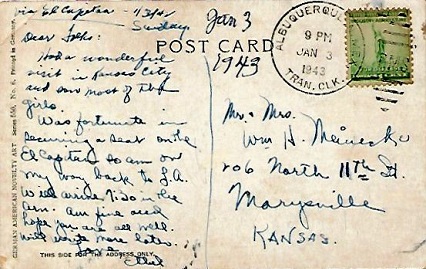 via El Capitan - 1/3/43
Sunday
Jan 3
1943
POST CARD
ALBUQUERQUE
9 PM
JAN 3
1943
TRAN. CLK.
Dear Folks:
Had a wonderful
visit in Kansas City
and saw most of the
girls.
Was fortunate in
securing a seat on the
El Capitan so am on
my way back to L.A.
will arrive 7:30 in the
a.m. Am fine and
hope you are all well.
will write more later.
Love
Ethel
Mr. & Mrs.
Wm H. Meinecke
706 North 11th St.
Marysville
KANSAS.
THIS SIDE FOR THE ADDRESS ONLY
GERMAN AMERICAN NOVELTY ART Series